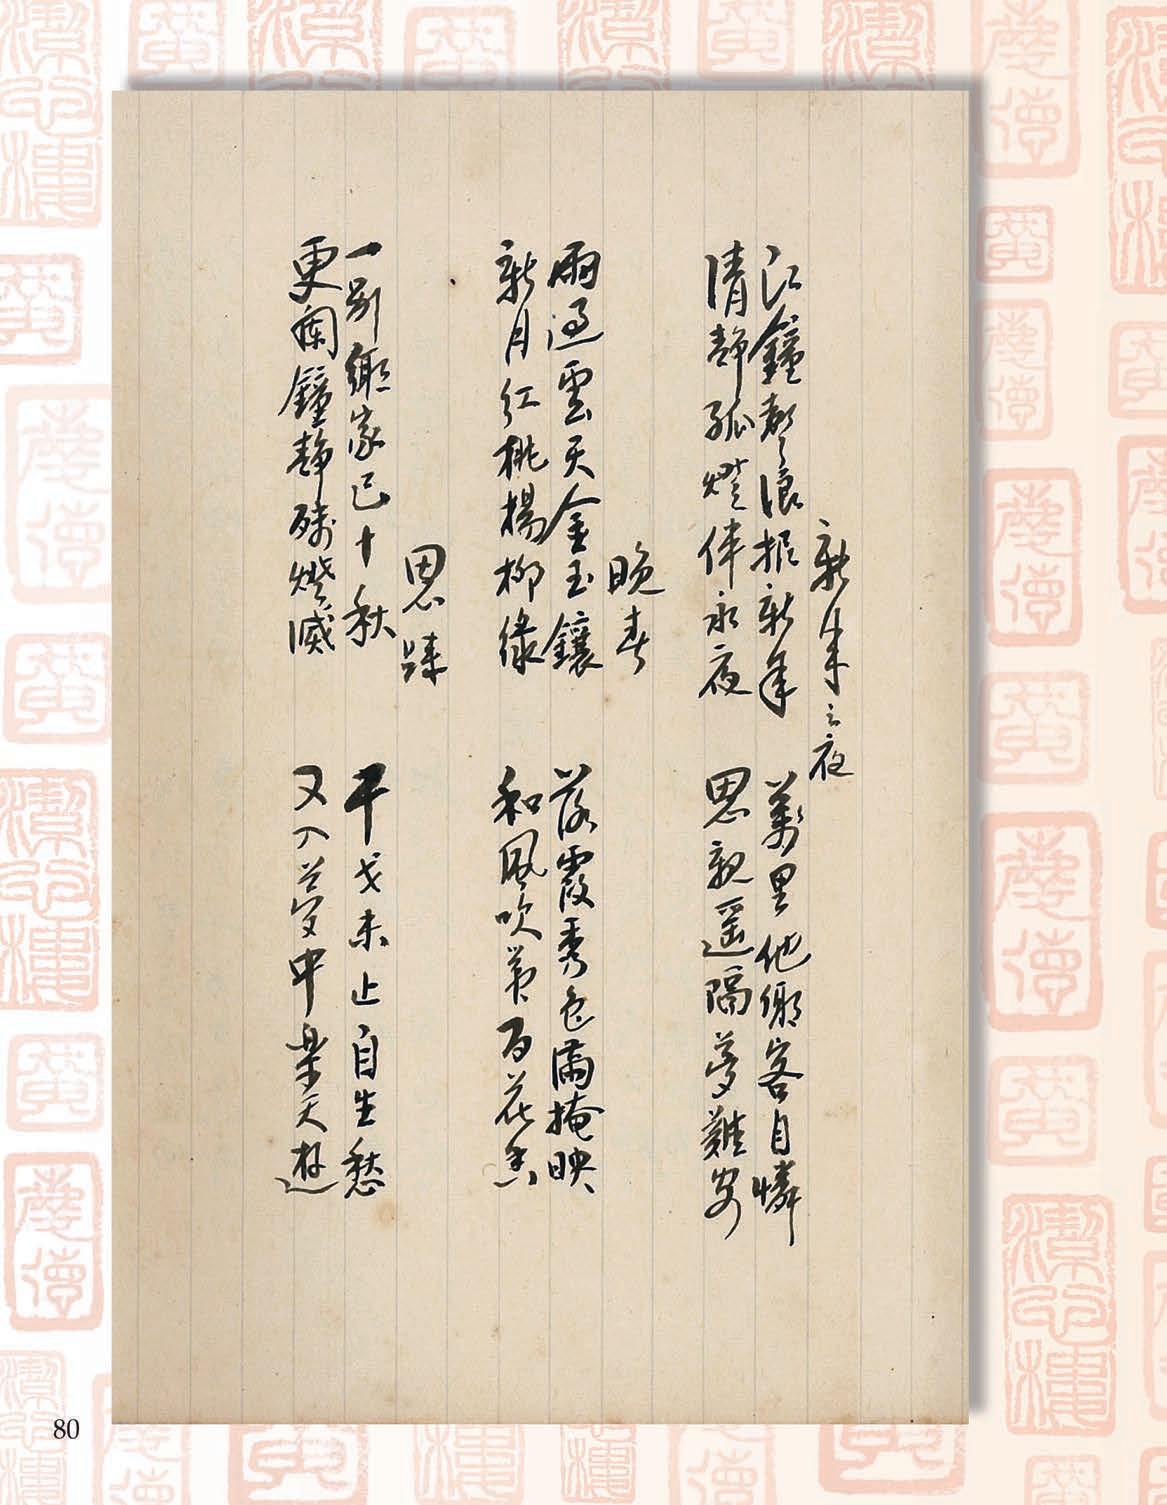 新年之夜
江鐘聲浪振新年　萬里他鄉客自憐
清靜孤燈伴永夜　思親遙隔夢難安
晚春
雨過雲天金玉鑲　落霞秀色滿掩映
新月紅桃楊柳綠　和風吹百花香
思歸
一別鄉家已十秋　干戈未止自生愁
更闌鐘靜殘燈滅　又入夢中樂天遊
80